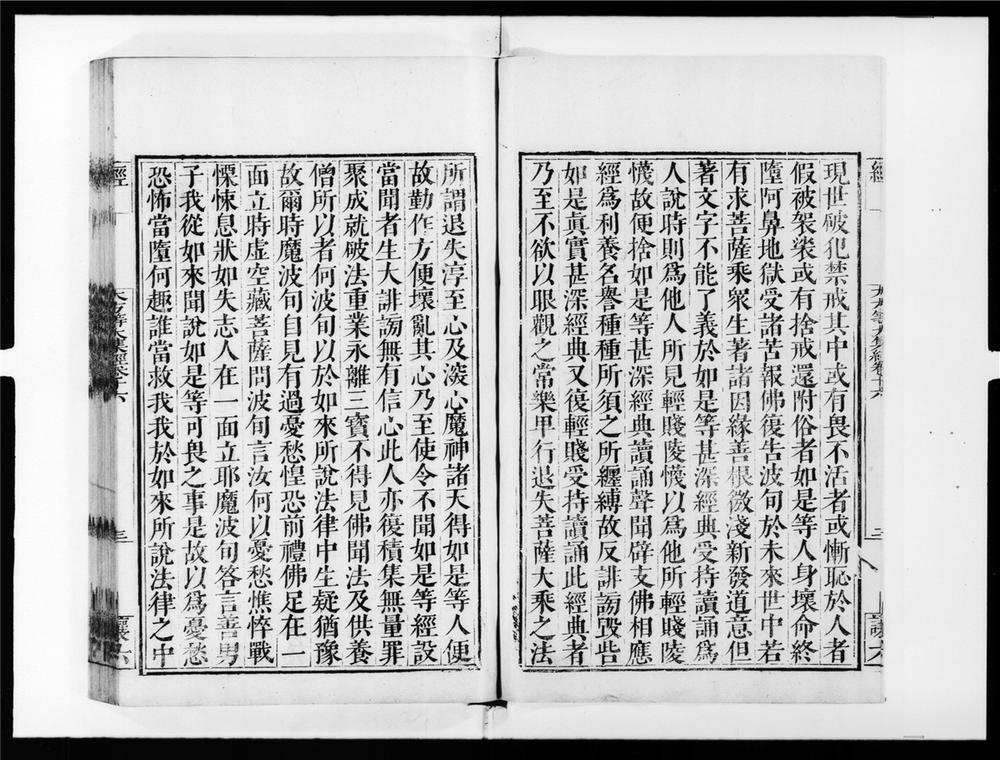 現世破犯禁戒其中或有畏不活者或慚恥於人者
假被袈裟或有捨戒還附俗者如是等人身壞命終
墮阿鼻地獄受諸苦報佛復告波旬於未來世中若
有求菩薩乘衆生著諸因緣善根微淺新發道意但
著文字不能了義於如是等甚深經典受持讀誦爲
人說時則爲他人所見輕賤陵懱以爲他所輕賤陵
懱故便捨如是等甚深經典讀誦聲聞辟支佛相應
經爲利養名譽種種所須之所纏縛故反誹謗毀呰
如是真實甚深經典又復輕賤受持讀誦此經典者
乃至不欲以眼觀之常樂甲行退失菩薩大乘之法
所謂退失淳至心及深心魔神諸天得如是等人便
故勤作方便壞亂其心乃至使令不聞如是等經設
當聞者生大誹謗無有信心此人亦復積集無量罪
聚成就破法重業永離三寶不得見佛聞法及供養
僧所以者何波旬以於如來所說法律中生疑猶豫
故爾時魔波旬自見有過憂愁惶恐前禮佛足在一
面立時虛空藏菩薩問波旬言汝何以憂愁憔悴戰
慄悚息狀如失志人在一面立耶魔波旬答言善男
子我從如來聞說如是等可畏之事是故以爲憂愁
恐怖當墮何趣誰當救我我於如來所說法律之中
經
大方等大集經卷十六
三